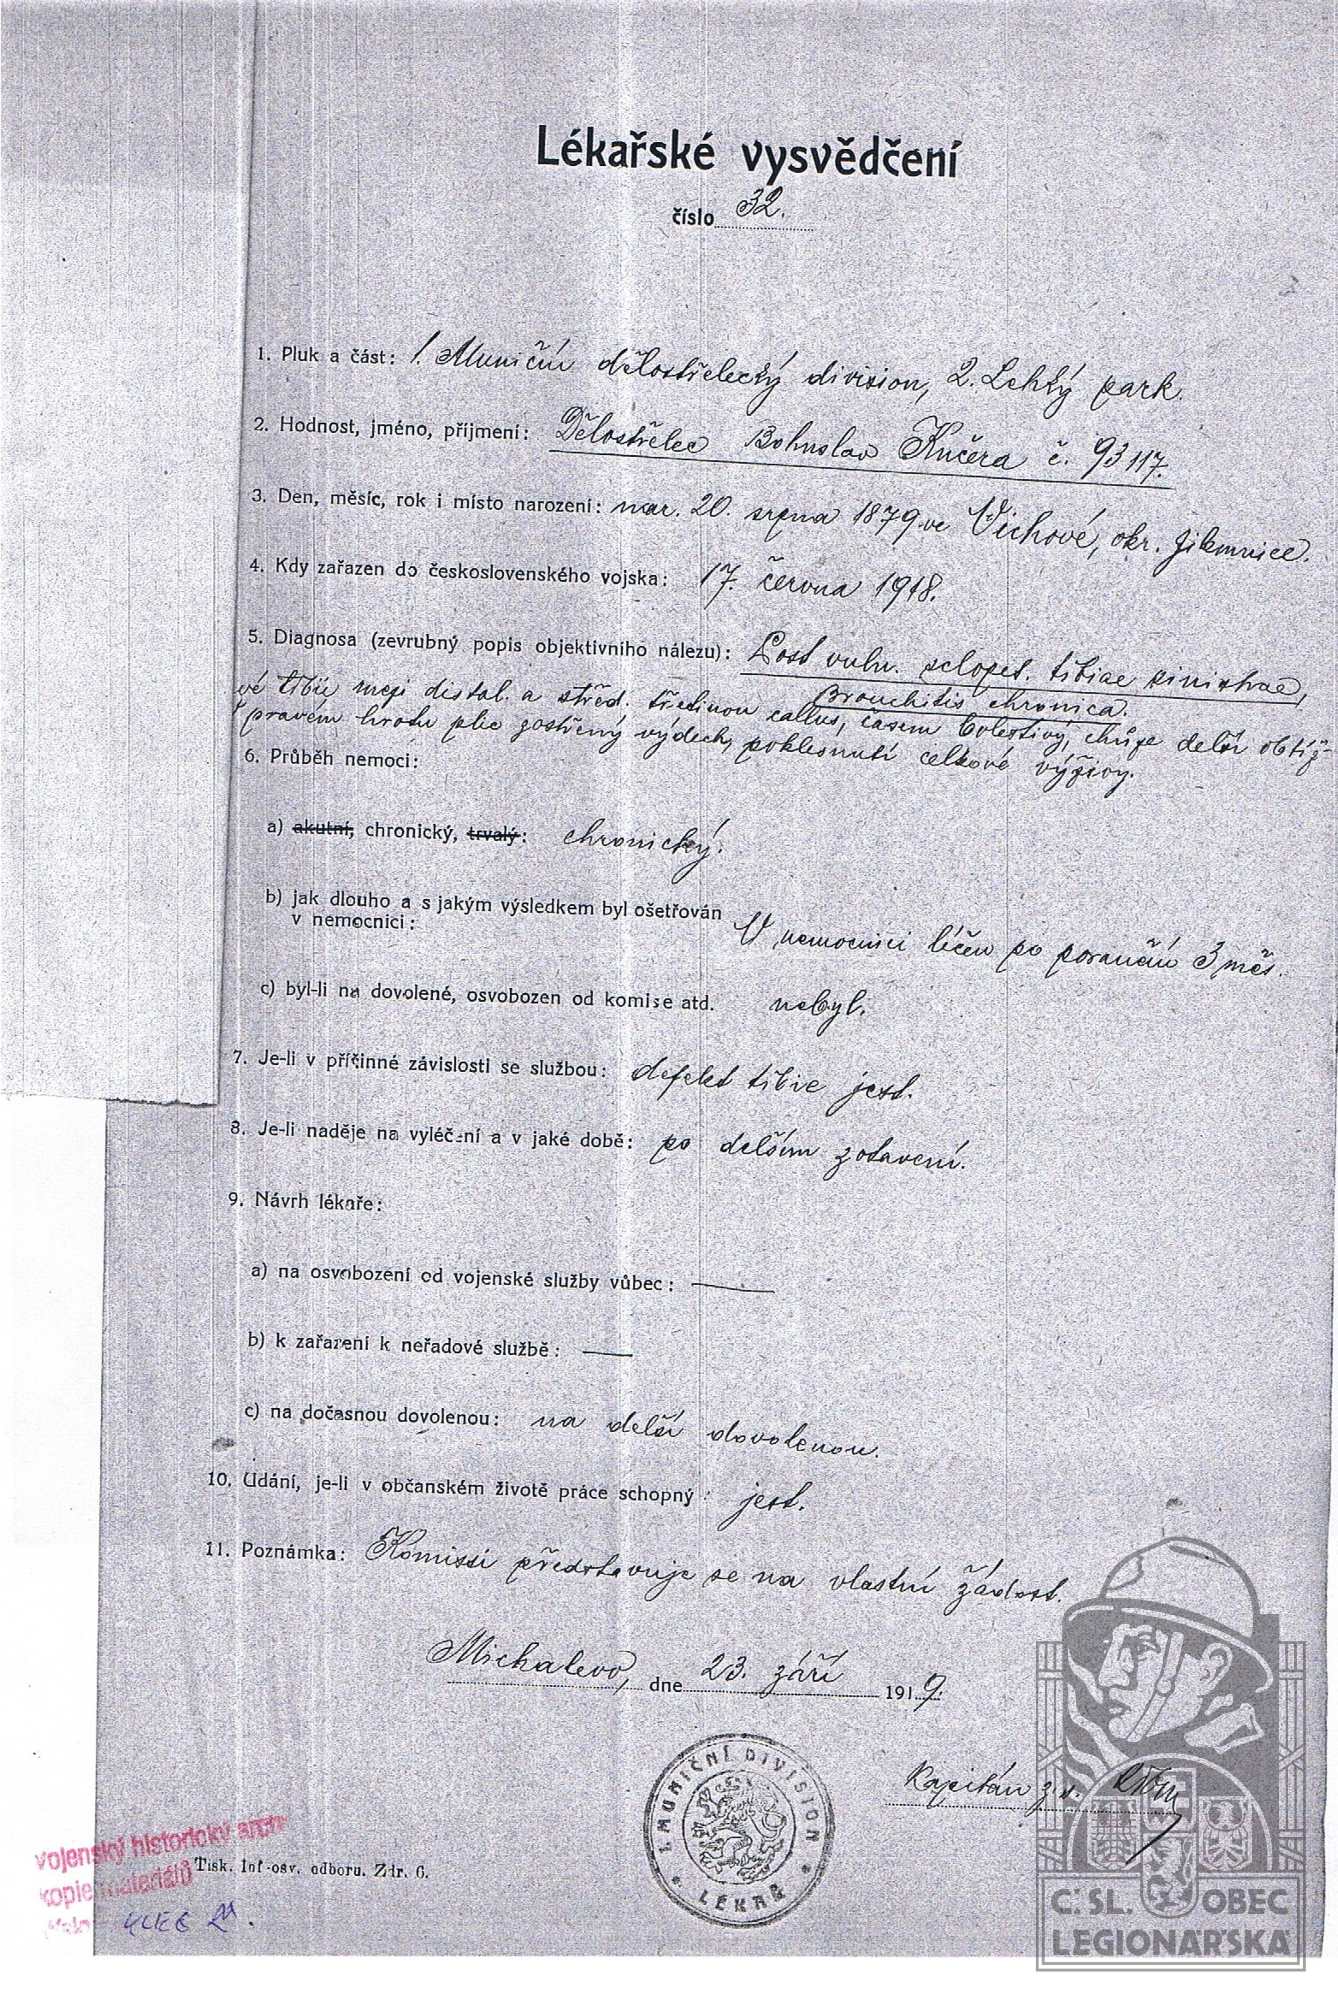 Lékařské vysvědčení
číslo 32.
1. Pluk a část: 1. Muniční dělostřelecký division, 2. Lehký park.
2. Hodnost, jméno, příjmení: Dělostřelec Bohuslav Kučera č. 93117.
3. Den, měsíc, rok i místo narození: nar. 20. srpna 1879 ve Víchové, okr. Jilemnice.
4. Kdy zařazen do československého vojska: 17. června 1918.
5. Diagnosa (zevrubný popis objektivního nálezu): Post vuln. sclopet. tibiae sinistrae,
Bronchitis chronica.
vé tibii mezi distal. a střed. třetinou callus, časem bolestivý, chůze delší obtíž-
pravém hrotu plic zostřený výdech, poklesnutí celkové výživy.
6. Průběh nemoci:
a) akutní, chronický, trvalý: chronický.
b) jak dlouho a s jakým výsledkem byl ošetřován
v nemocnici: V nemocnici léčen po poranění 3 měs.
c) byl-li na dovolené, osvobozen od komise atd. nebyl.
7. Je-li v příčinné závislosti se službou: defekt tibie jest.
8. Je-li naděje na vyléčení a v jaké době: po delším zotavení.
9. Návrh lékaře:
a) na osvobození od vojenské služby vůbec: —
b) k zařazení k neřadové službě: —
c) na dočasnou dovolenou: na delší dovolenou.
10. Udání, je-li v občanském životě práce schopný: jest.
11. Poznámka: Komissi představuje se na vlastní žádost.
Michalevo, dne 23. září 1919.
1. MUNIČNÍ DIVISION
LÉKAŘ
Kapitán z.v.
vojenský historický archiv
kopie materiálů
Tisk. Inf.-osv. odboru. Zdr. 6.
Č.SL. OBEC
LEGIONÁŘSKÁ